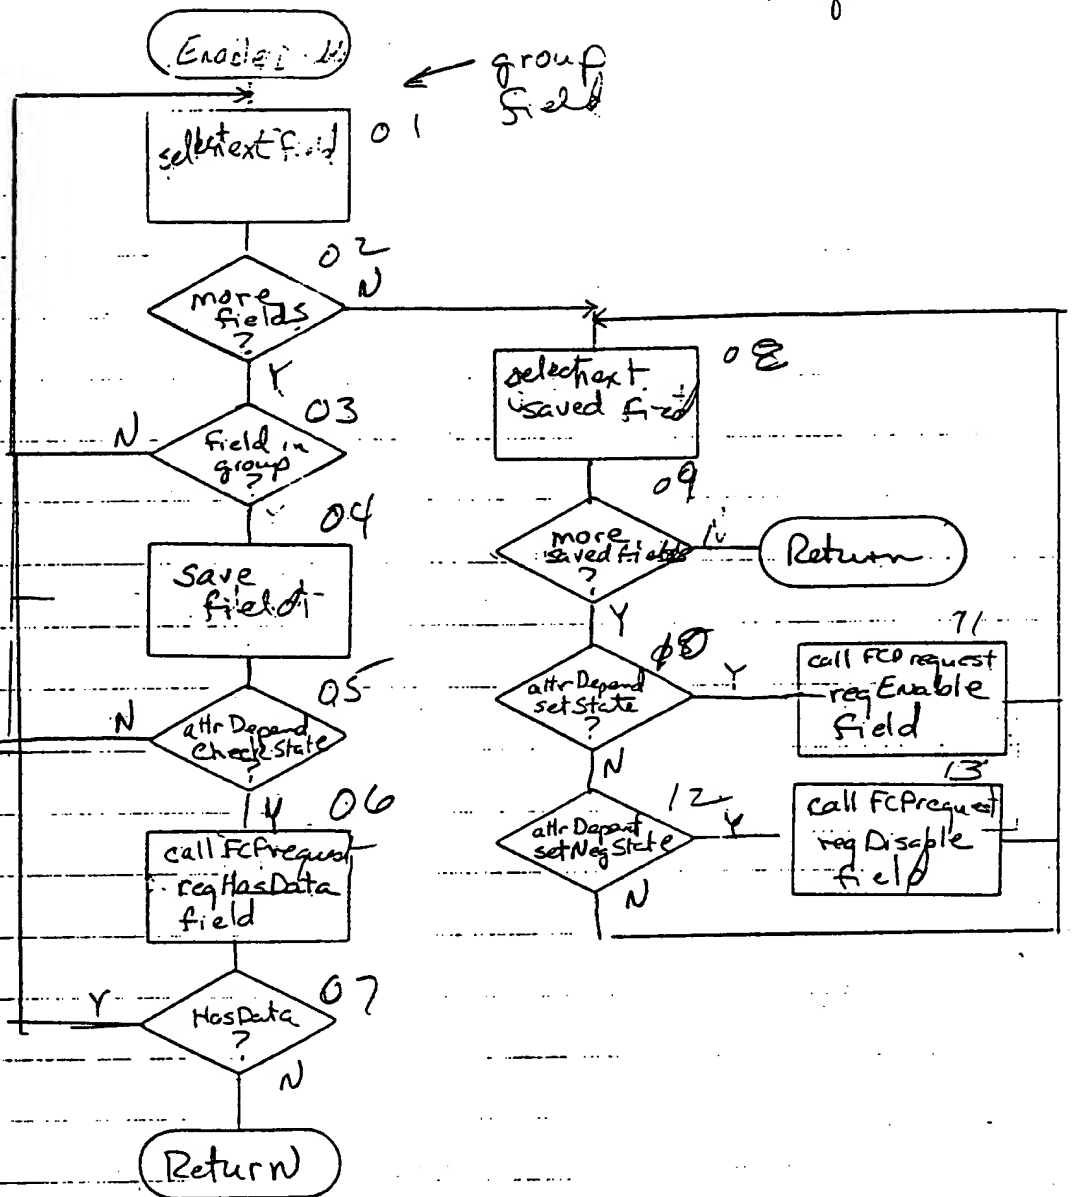 group
field
01
select next field
02
N
more
fields
?
Y
03
N
field in
group
?
04
save
field
05
N
attrDepend
CheckState
?
Y
06
call FCPrequest
reqHasData
field
07
Y
HasData
?
N
Return
08
select next
saved field
09
more
saved fields
?
N
Return
Y
attrDepend
setState
?
Y
11
call FCPrequest
reqEnable
field
N
12
attrDepend
setNegState
Y
13
call FCPrequest
reqDisable
field
N